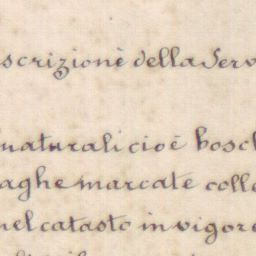 scrizione della Serv
naturali cioè bosch
aghe marcate colle
nel catasto in vigore